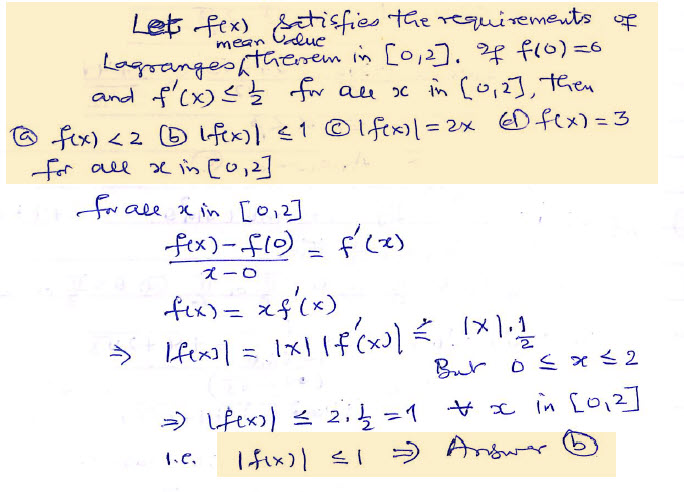 Let f(x) satisfies the requirements of
Lagranges mean value theorem in [0,2]. If f(0)=6
and f'(x) ≤ 1/2 for all x in [0,2], then
ⓐ f(x) < 2 ⓑ |f(x)| ≤ 1 ⓒ |f(x)| = 2x ⓓ f(x) = 3
for all x in [0,2]
for all x in [0,2]
(f(x) - f(0))/(x-0) = f'(x)
f(x) = x f'(x)
⇒ |f(x)| = |x| |f'(x)| ≤ |x|.1/2
But 0 ≤ x ≤ 2
⇒ |f(x)| ≤ 2.1/2 = 1 ∀ x in [0,2]
i.e. |f(x)| ≤ 1 ⇒ Answer ⓑ